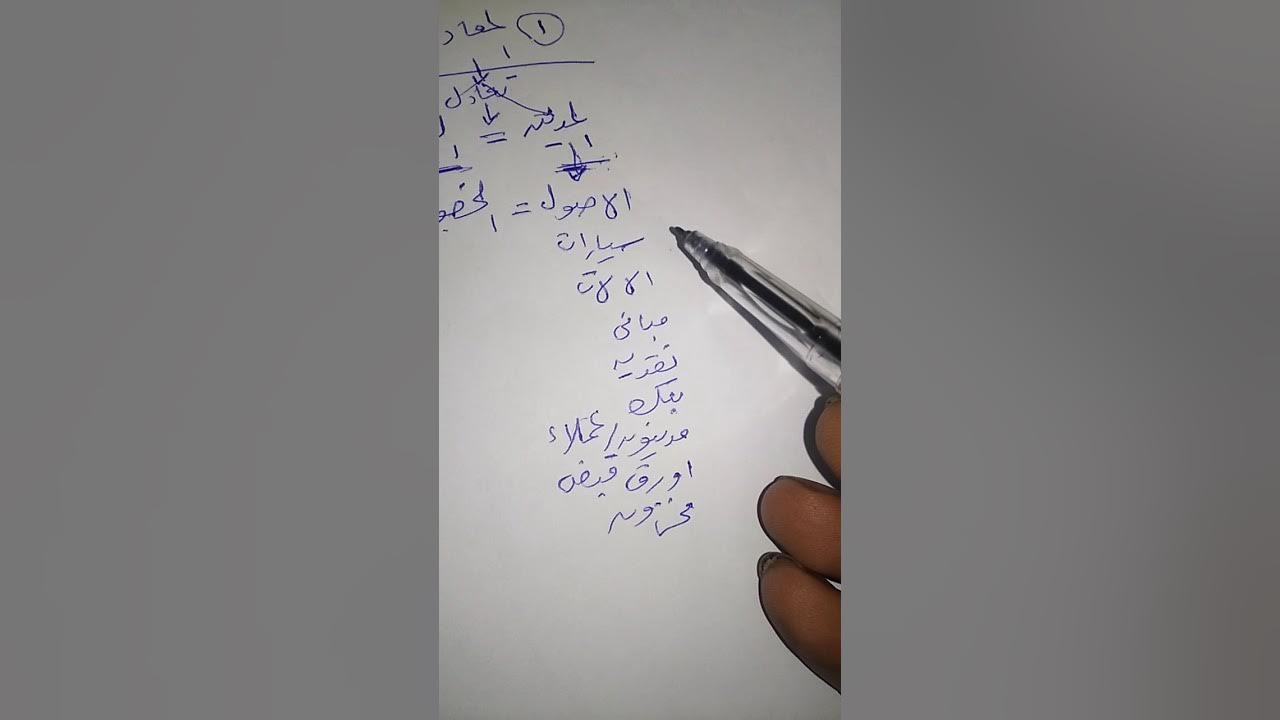 ① المعاد
تعادل
المدينه = ا
الاصول = الخصو
سيارات
الالات
مبانى
نقديه
بنك
مدينون/عملاء
اورق قبض
مخزون